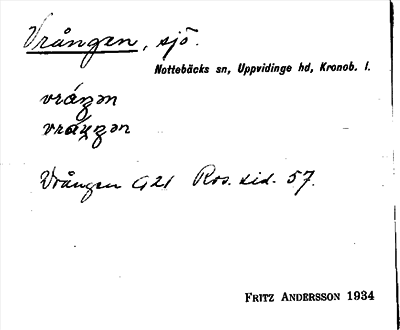 Vrången, sjö.
Nottebäcks sn, Uppvidinge hd, Kronob. l.
Vrången G21 Ros. sid. 57.
FRITZ ANDERSSON 1934